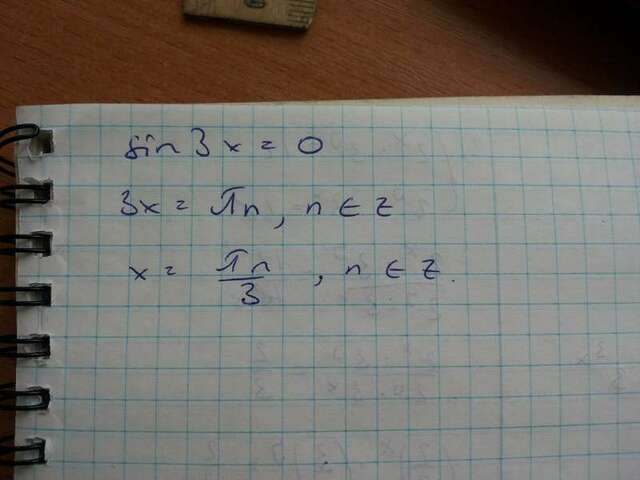 sin 3x = 0
3x = πn, n ∈ Z
x = πn/3, n ∈ Z.